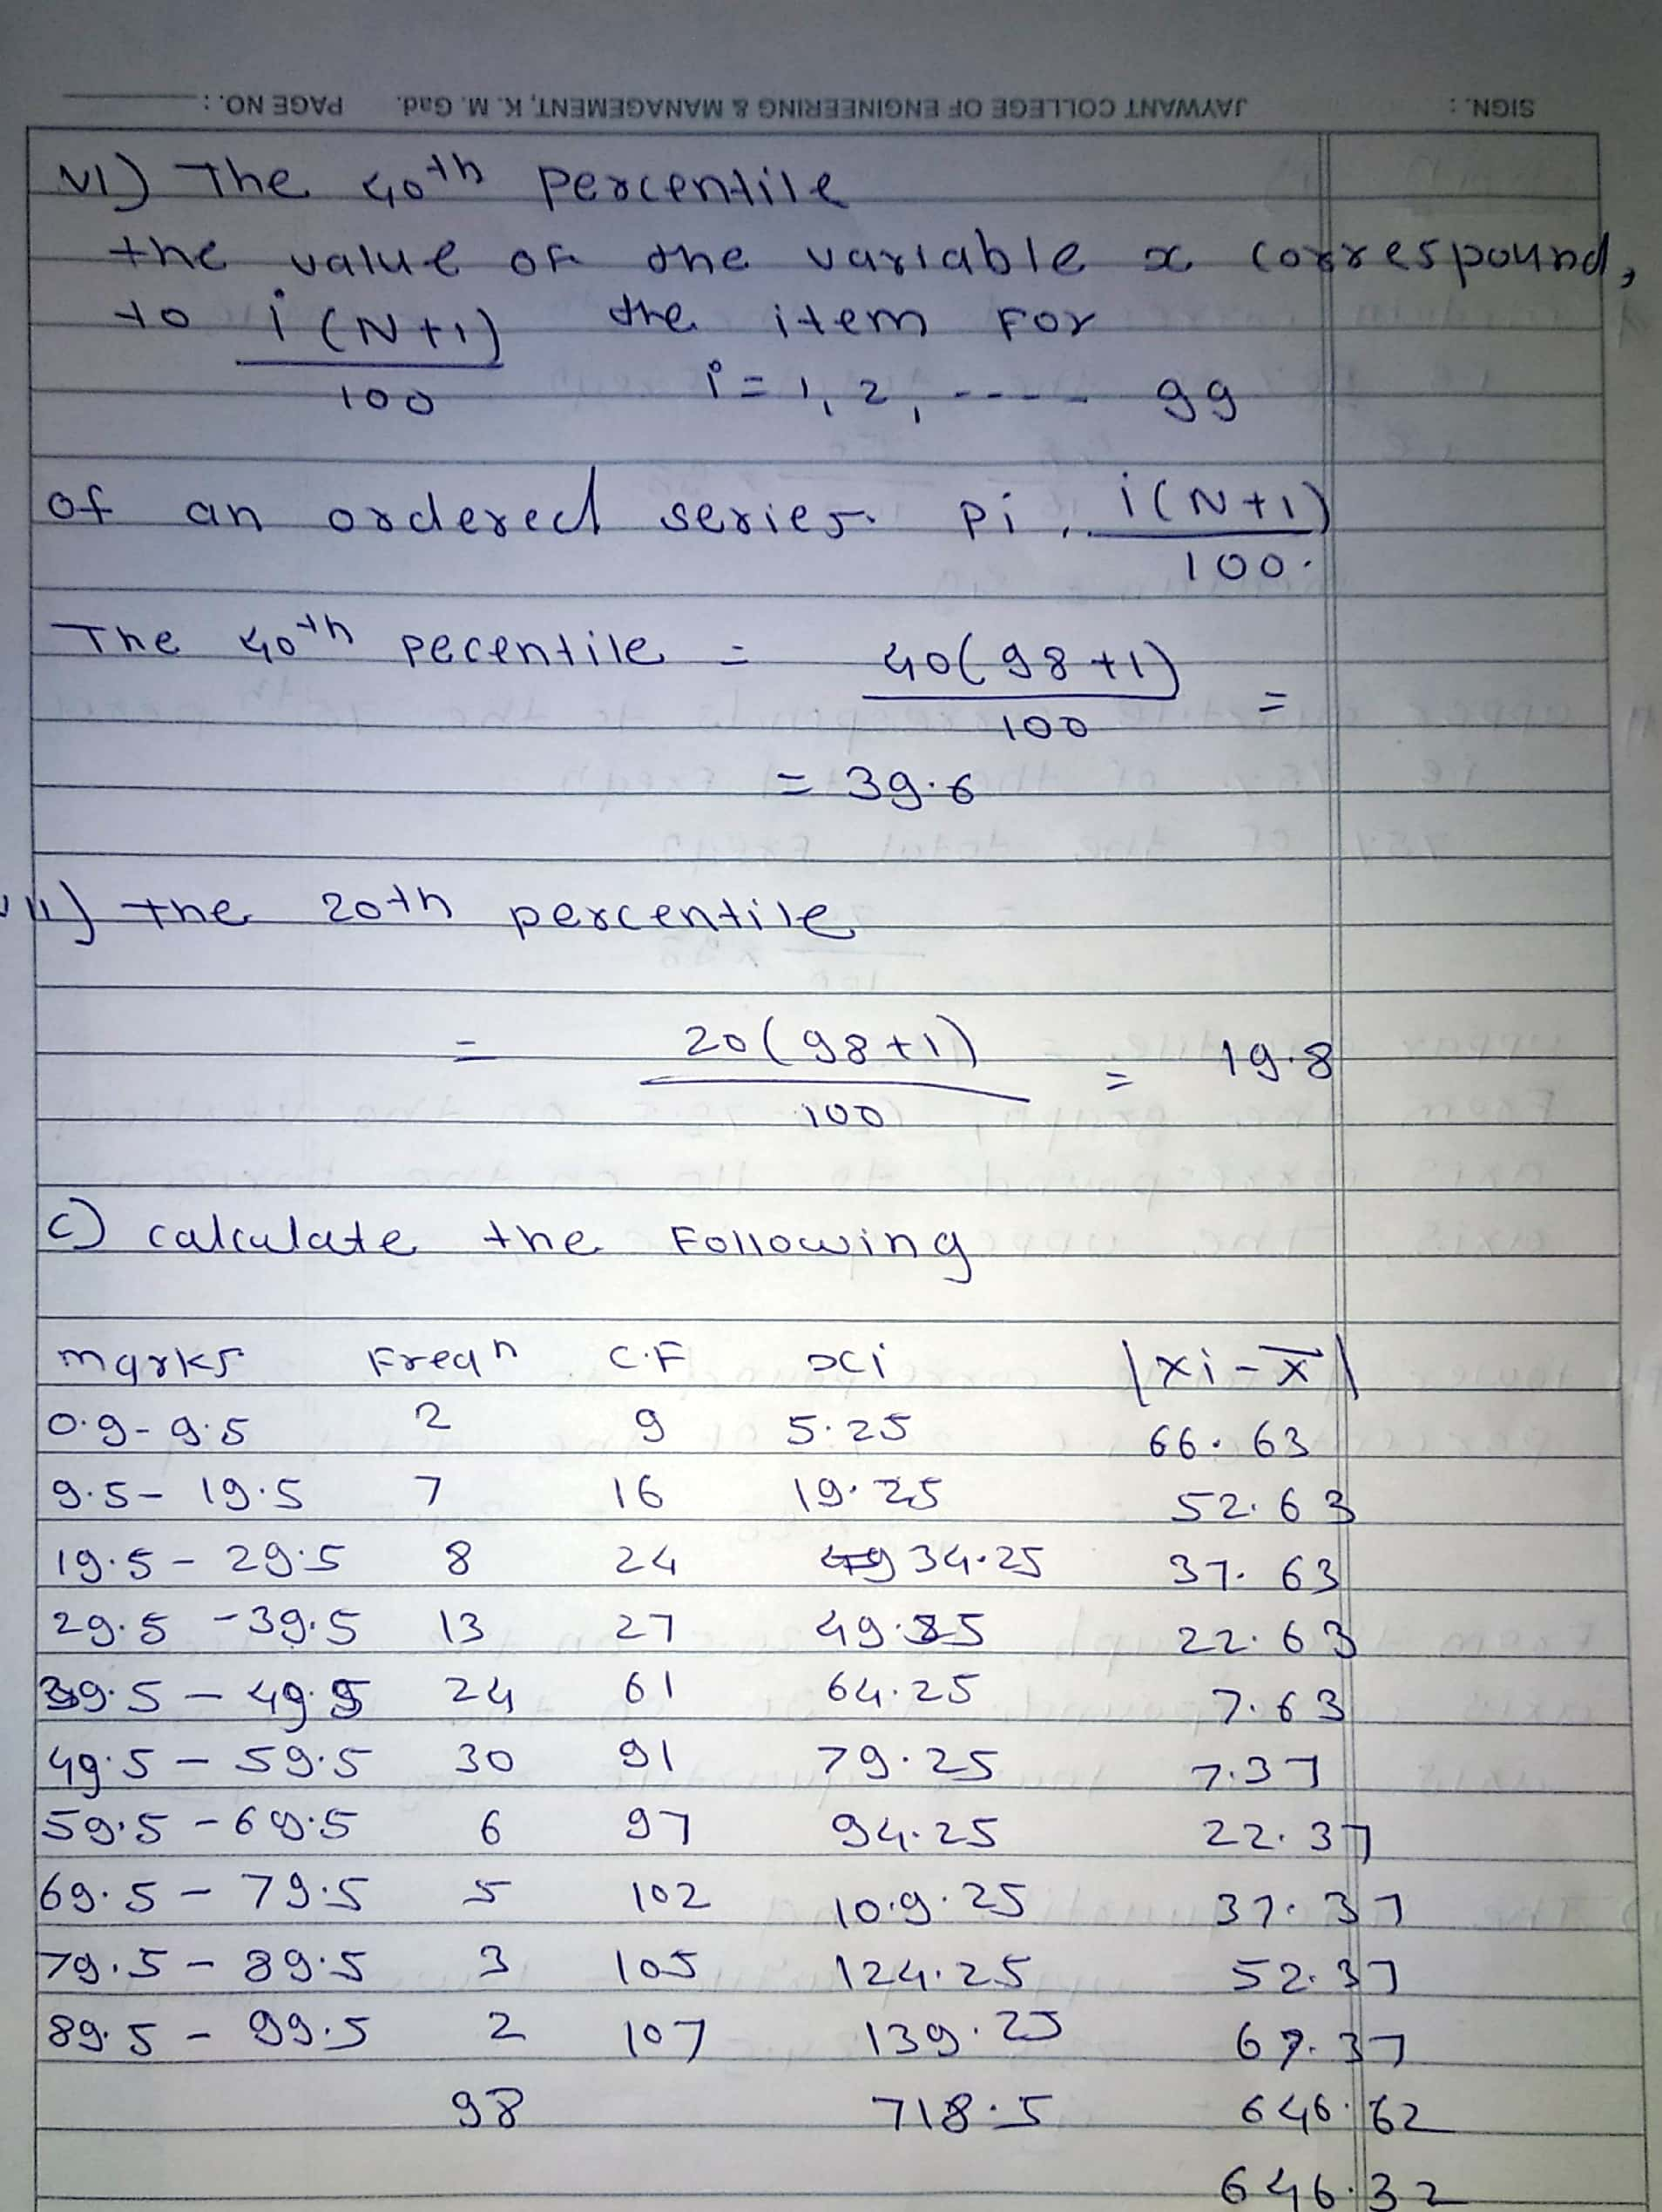 SIGN. : JAYWANT COLLEGE OF ENGINEERING & MANAGEMENT, K. M. Gad. PAGE NO. :
VI) The 40th percentile
the value of the variable x correspound,
to i(N+1)/100 the item for
i = 1, 2, ---- 99
of an ordered series. pi, i(N+1)/100.
The 40th pecentile = 40(98+1)/100 =
= 39.6
VII) the 20th percentile
= 20(98+1)/100 = 19.8
c) calculate the Following
marks Freqn C.F xi |xi-x̅|
0.9-9.5 2 9 5.25 66.63
9.5-19.5 7 16 19.25 52.63
19.5-29.5 8 24 34.25 37.63
29.5-39.5 13 27 49.25 22.63
39.5-49.5 24 61 64.25 7.63
49.5-59.5 30 91 79.25 7.37
59.5-69.5 6 97 94.25 22.37
69.5-79.5 5 102 109.25 37.37
79.5-89.5 3 105 124.25 52.37
89.5-99.5 2 107 139.25 67.37
98 718.5 646.62
646.32